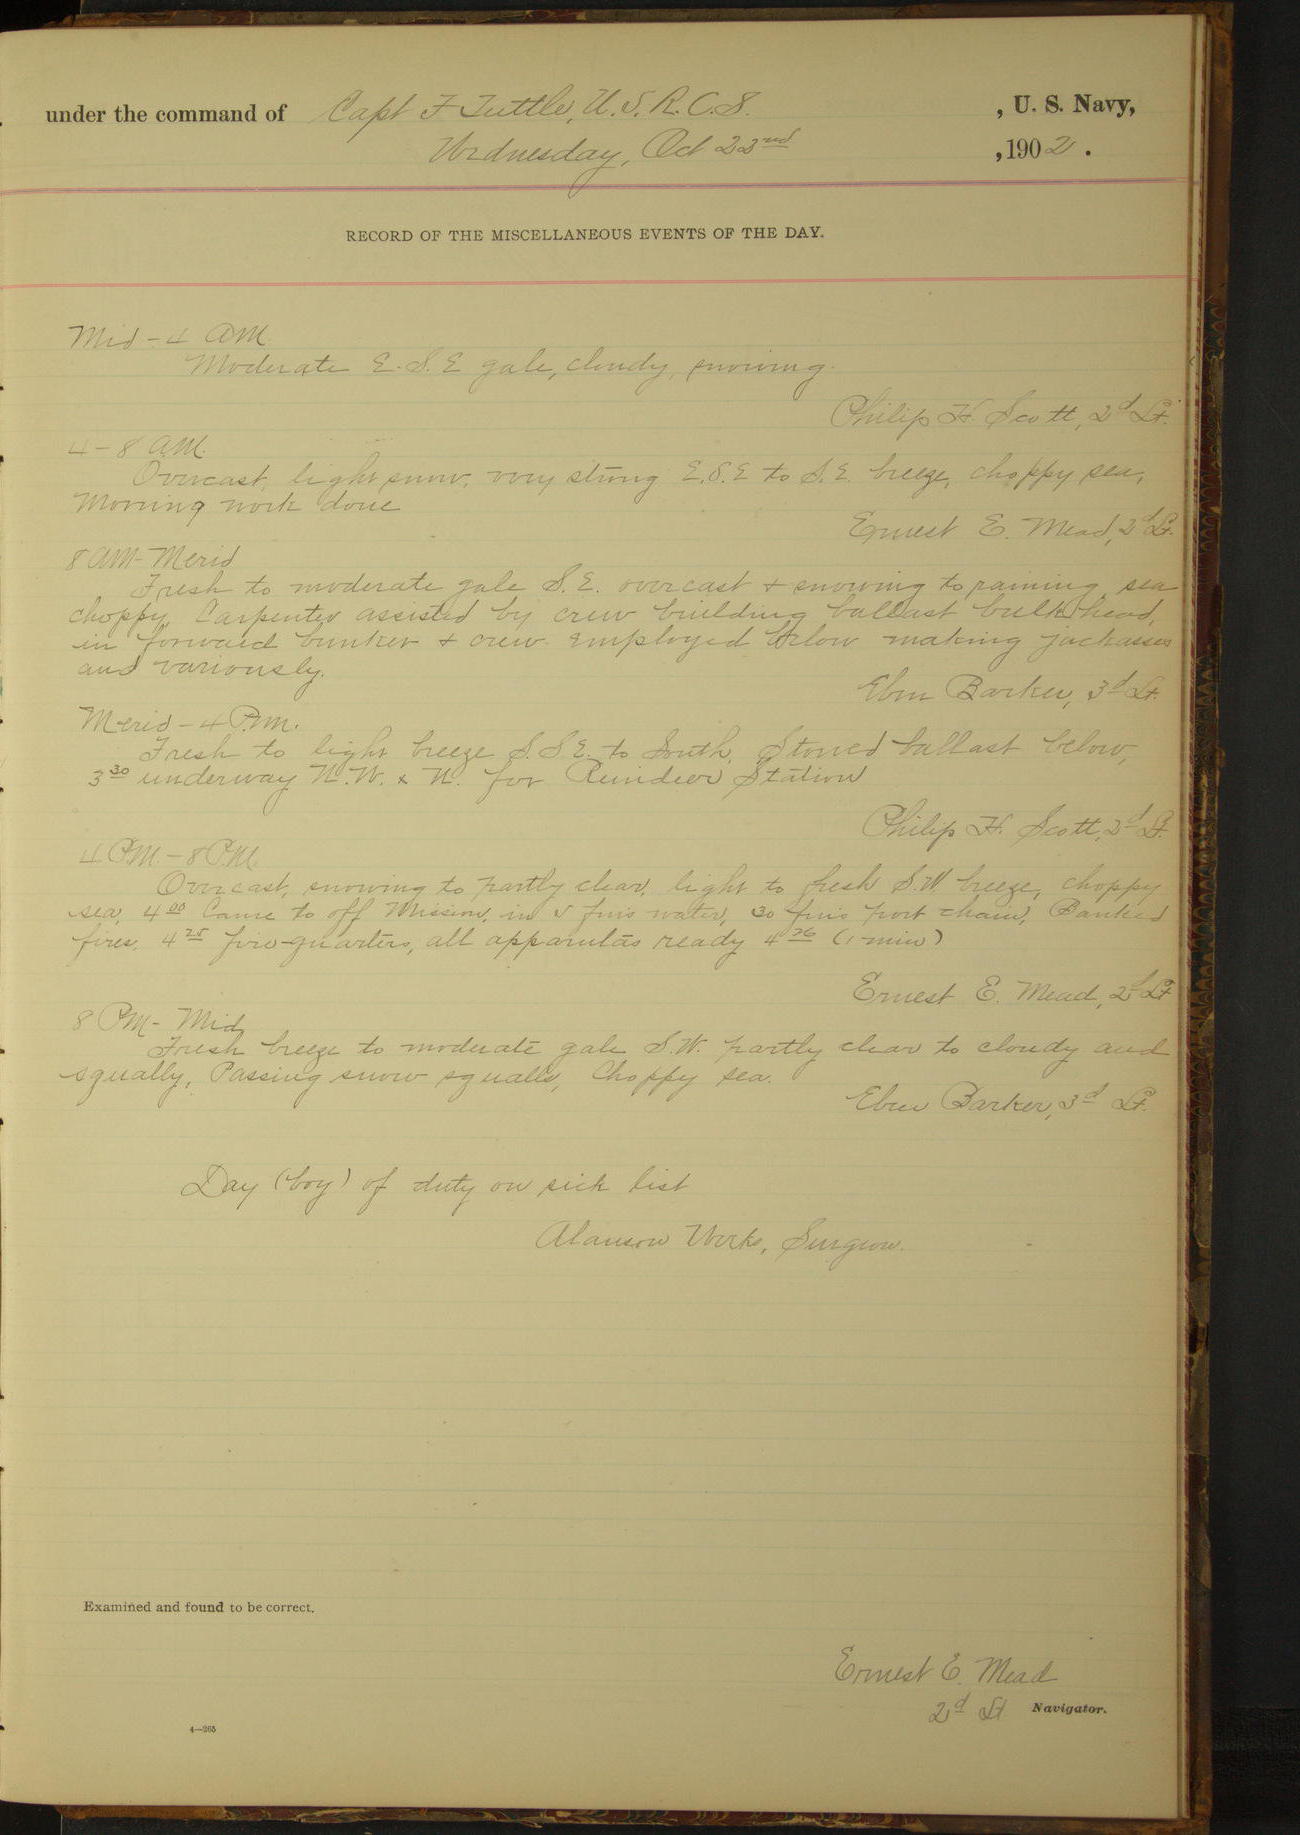 under the command of Capt F Tuttle, U. S. R. C. S. , U. S. Navy,
Wednesday, Oct 22nd , 1902 .
RECORD OF THE MISCELLANEOUS EVENTS OF THE DAY.
Mid - 4 AM.
Moderate E. S. E gale, cloudy, snowing.
Philip H. Scott, 2d Lt.
4 - 8 A.M.
Overcast, light snow, very strong E. S. E to S. E. breeze, choppy sea,
Morning work done
Ernest E. Mead, 2d Lt.
8 AM - Merid
Fresh to moderate gale S. E. overcast & snowing to raining, sea
choppy. Carpenter assisted by crew building ballast bulkhead,
in forward bunker & crew employed below making jackasses
and variously.
Eben Barker, 3d Lt.
Merid - 4 P.m.
Fresh to light breeze S. S E. to South, Stowed ballast below,
3 30 underway N. W. x N. for Reindeer Station
Philip H. Scott, 2d Lt.
4 P.M. - 8 P.M.
Overcast, snowing to partly clear, light to fresh S. W. breeze, choppy
sea, 4 00 Came to off Mission, in 5 fms water, 30 fms port chain, Banked
fires. 4 25 fire-quarters, all apparatus ready 4 26 (1 min)
Ernest E. Mead, 2d Lt
8 PM - Mid
Fresh breeze to moderate gale S. W. partly clear to cloudy and
squally, Passing snow squalls, Choppy sea.
Eben Barker, 3d Lt.
Day (boy) of duty on sick list
Alanson Works, Surgeon.
Examined and found to be correct.
Ernest E. Mead
2d Lt Navigator.
4—265